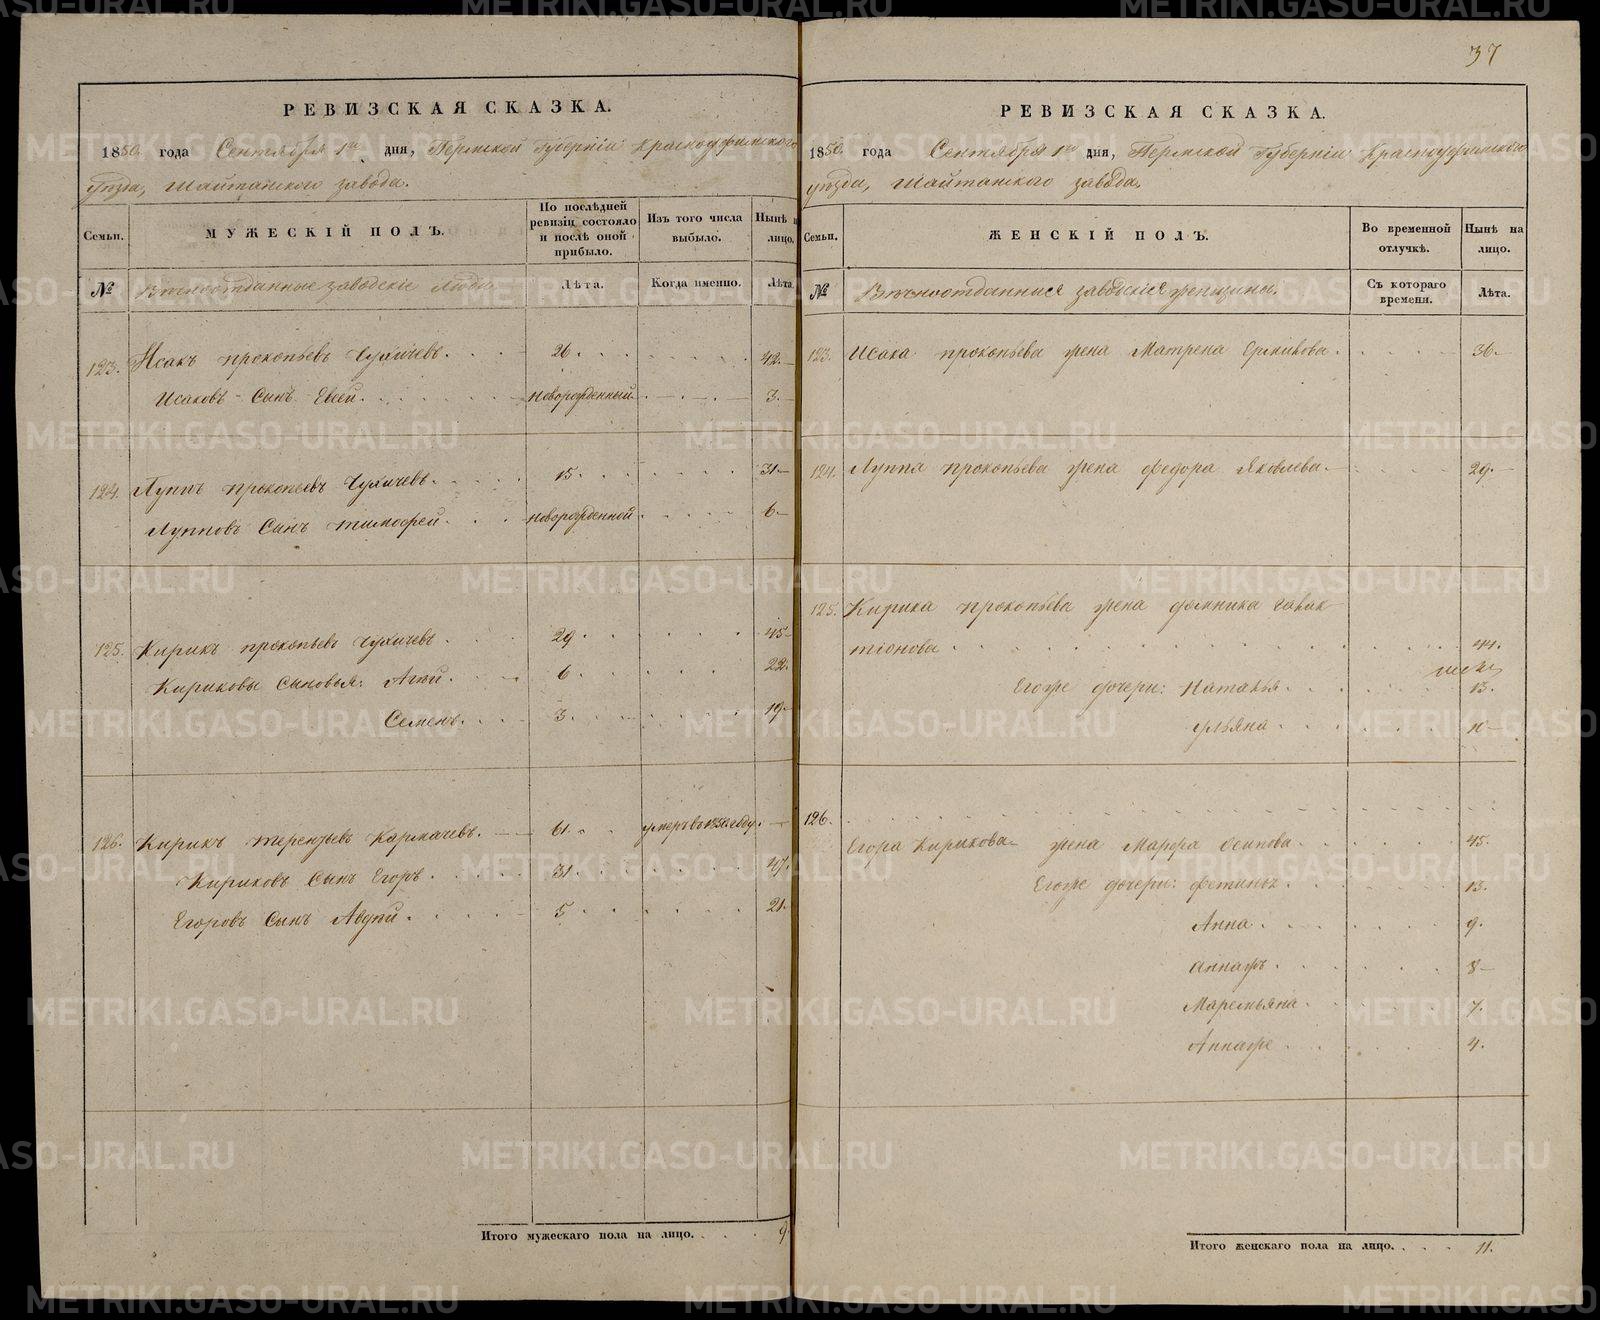 37
РЕВИЗСКАЯ СКАЗКА.
1850 года Сентября 1го дня, Пермской Губерніи Красноуфимского
уѣзда, Шайтанского завода.
Семьи.
МУЖЕСКІЙ ПОЛЪ.
По послѣдней ревизіи состояло и послѣ оной прибыло.
Изъ того числа выбыло.
Нынѣ на лицо.
№
Вѣчноотданные заводскіе люди.
Лѣта.
Когда именно.
Лѣта.
123. Исакъ прокопьевъ Чухачевъ. 26. 42.
Исаковъ сынъ новорожденный 3.
124. Луппъ прокопьевъ Чухачевъ. 15. 31.
Лупповъ Сынъ тимофей. новорожденной 6.
125. Кирикъ прокопьевъ Чухачевъ. 29. 45.
Кириковы сыновья: 6. 22.
Семенъ. 3. 19.
126. Кирикъ терентьевъ Кармачевъ. 61. умеръ въ 1850 году.
Кириковъ сынъ Егоръ. 31. 47.
Егоровъ сынъ Авдѣй. 5. 21.
Итого мужескаго пола на лицо. 9.
РЕВИЗСКАЯ СКАЗКА.
1850 года Сентября 1го дня, Пермской Губерніи Красноуфимского
уѣзда, Шайтанского завода.
Семьи.
ЖЕНСКІЙ ПОЛЪ.
Во временной отлучкѣ.
Нынѣ на лицо.
№
Вѣчноотданныя заводскія женщины.
Съ котораго времени.
Лѣта.
123. Исака прокопьева жена Матрена Ермилова. 36.
124. Луппа прокопьева жена федора Яковлева. 29.
125. Кирика прокопьева жена домника галак
тіонова 44.
Егоже дочери: Наталья. 13.
ульяна. 10
126.
Егора Кирикова жена Марфа осипова. 45.
Егоже дочери: фетинья. 13.
Анна. 9.
8
Маремьяна. 7.
4.
Итого женскаго пола на лицо. 11.
METRIKI.GASO-URAL.RU